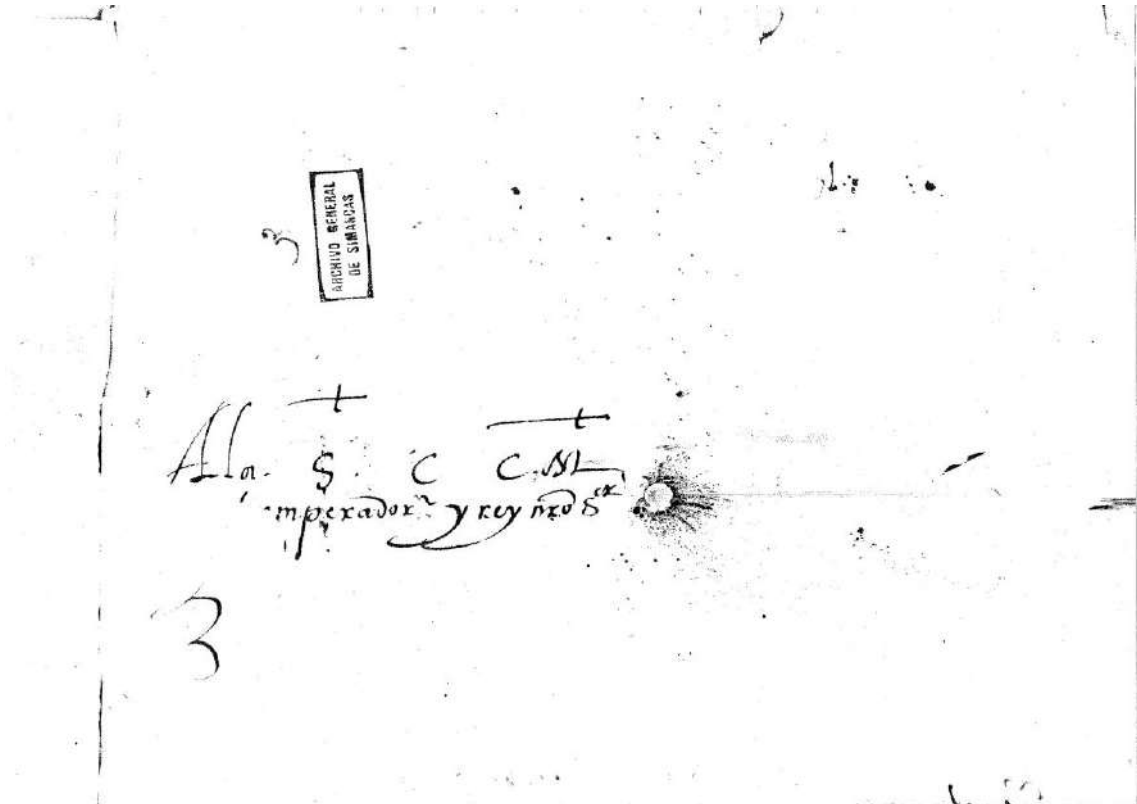 3
ARCHIVO GENERAL
DE SIMANCAS
A la S. C C. M
emperador y rey nro Sor
3